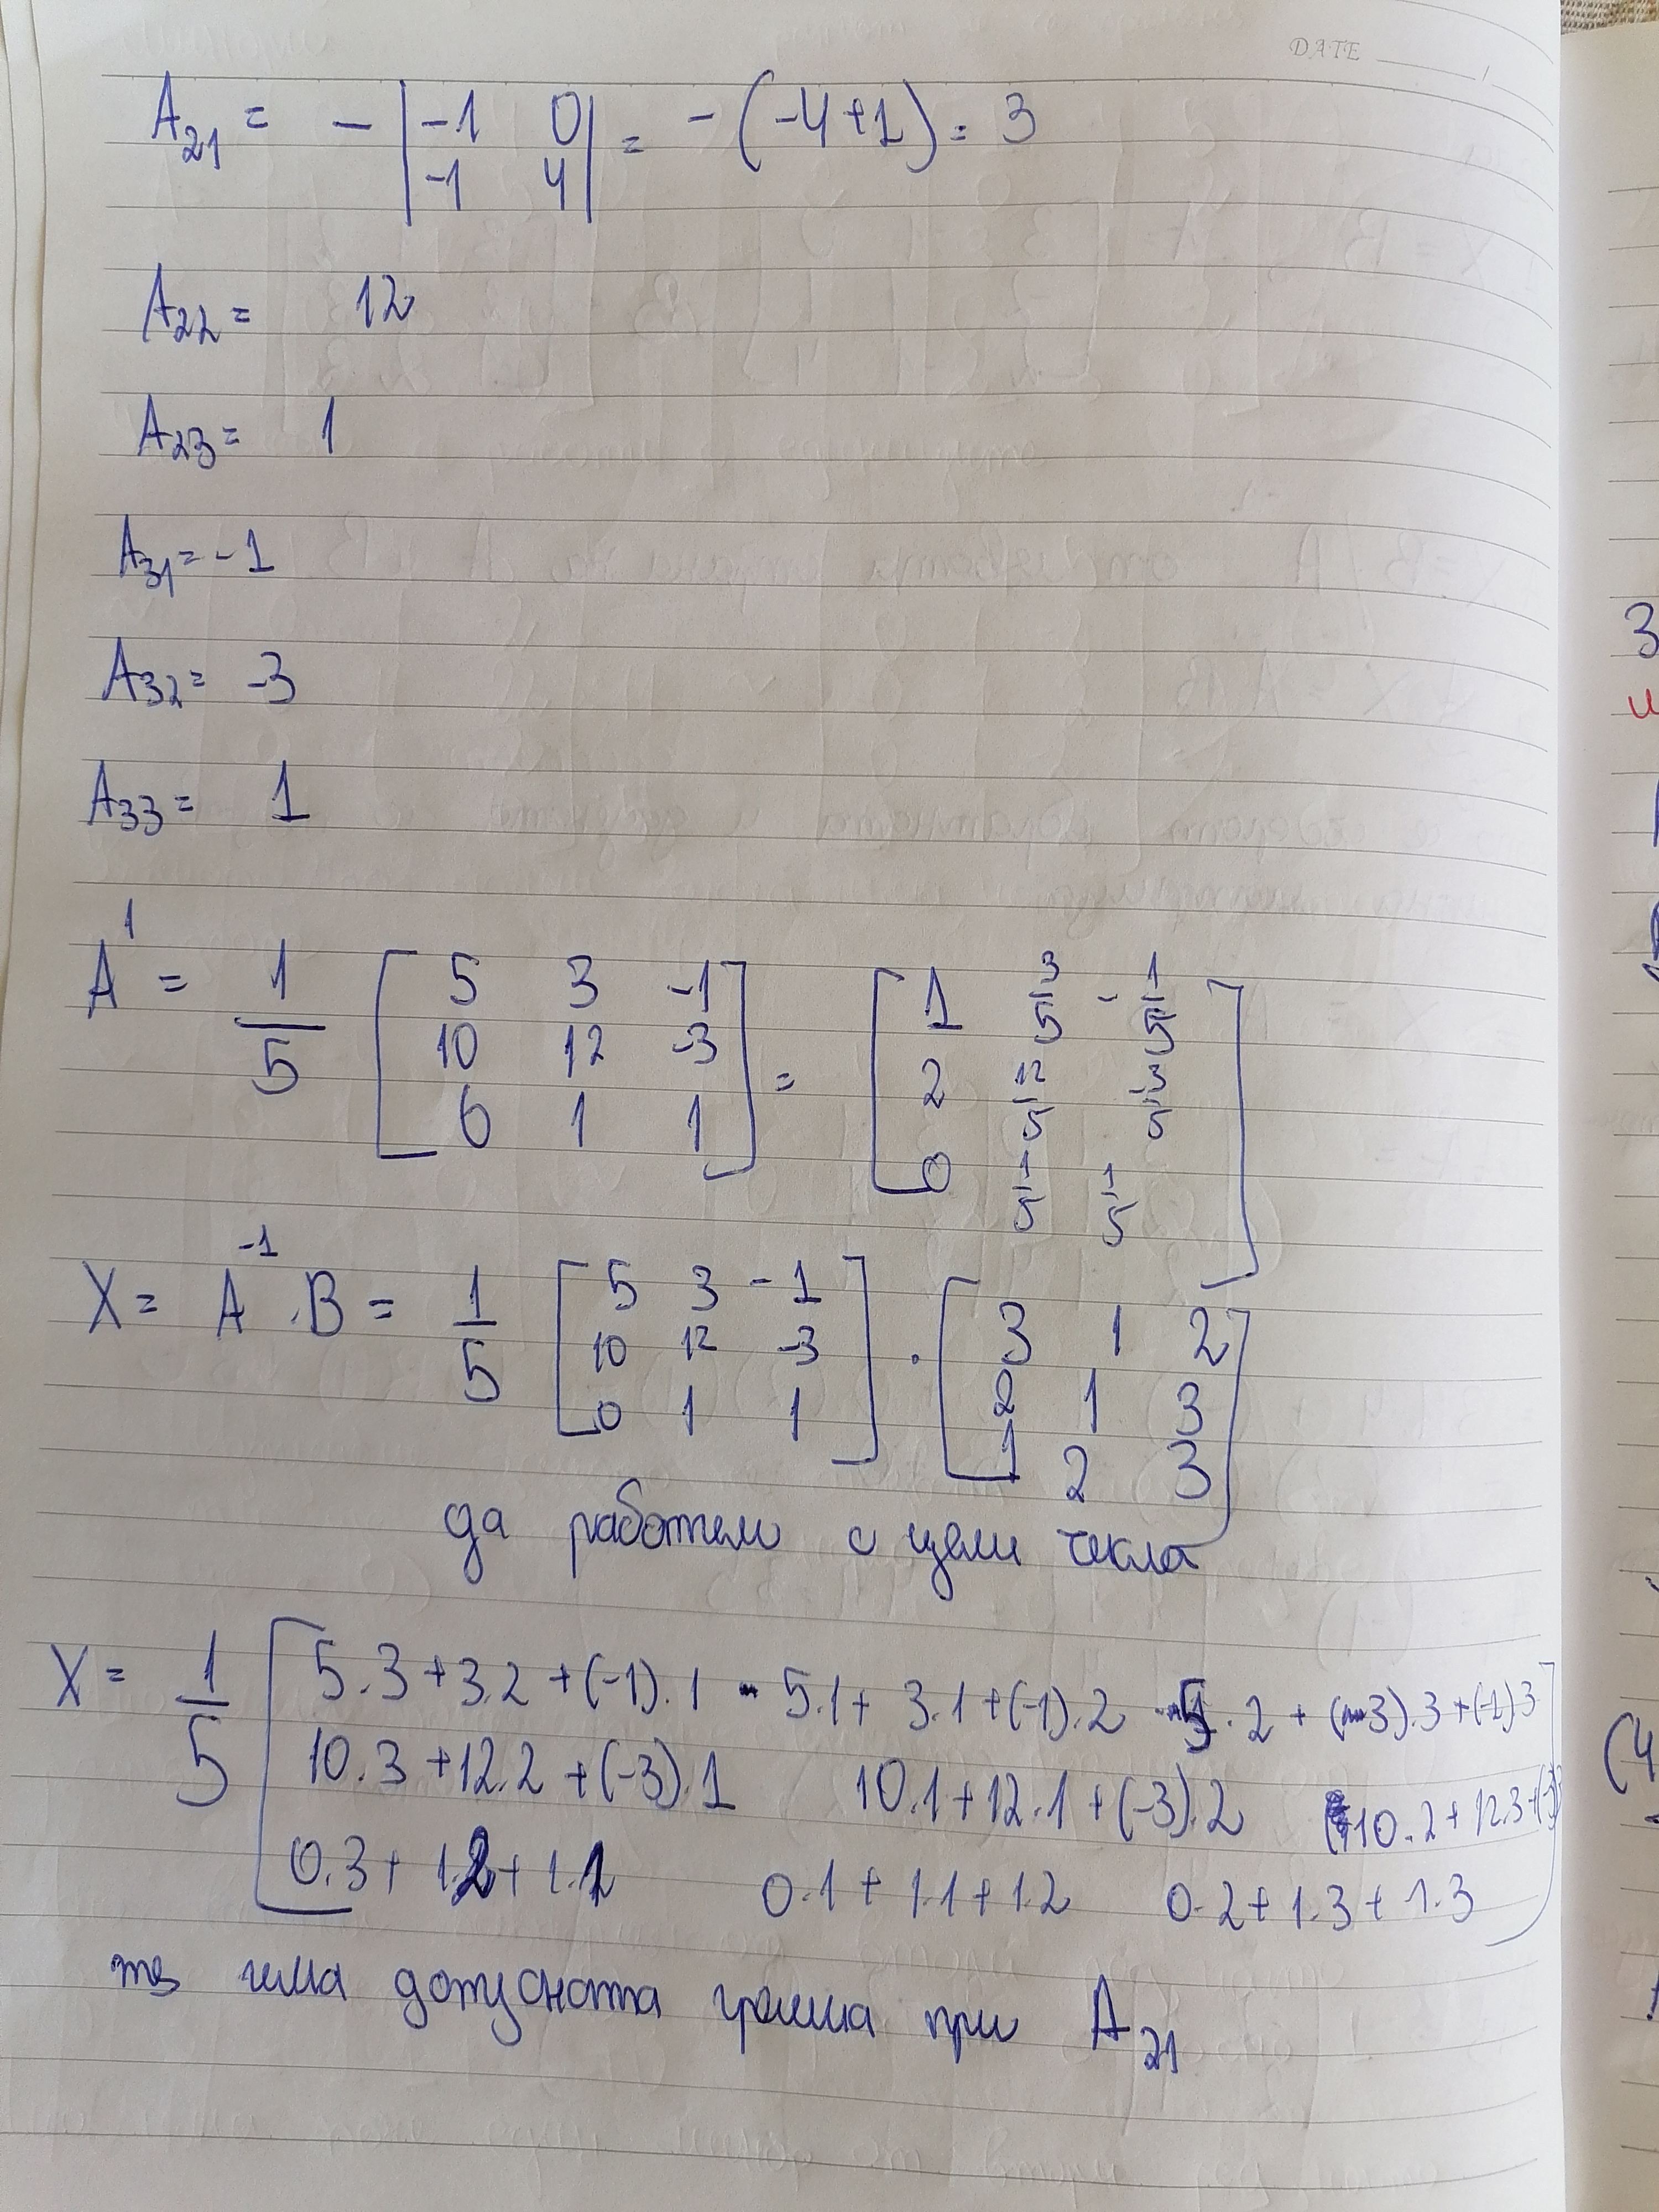 DATE
A₂₁ = - |-1 0| = -(-4+1) = 3
|-1 4|
A₂₂ = 12
A₂₃ = 1
A₃₁ = -1
A₃₂ = -3
A₃₃ = 1
A¹ = 1/5 [5 3 -1] = [1 3/5 -1/5]
[10 12 -3] [2 12/5 -3/5]
[0 1 1] [0 1/5 1/5]
X = A⁻¹.B = 1/5 [5 3 -1] . [3 1 2]
[10 12 -3] [2 1 3]
[0 1 1] [1 2 3]
да работим с цели числа
X = 1/5 [5.3+3.2+(-1).1 5.1+3.1+(-1).2 5.2+(3).3+(-1)3]
[10.3+12.2+(-3).1 10.1+12.1+(-3).2 10.2+12.3+(-3)]
[0.3+1.2+1.1 0.1+1.1+1.2 0.2+1.3+1.3]
има допусната грешка при A₂₁
3
(4